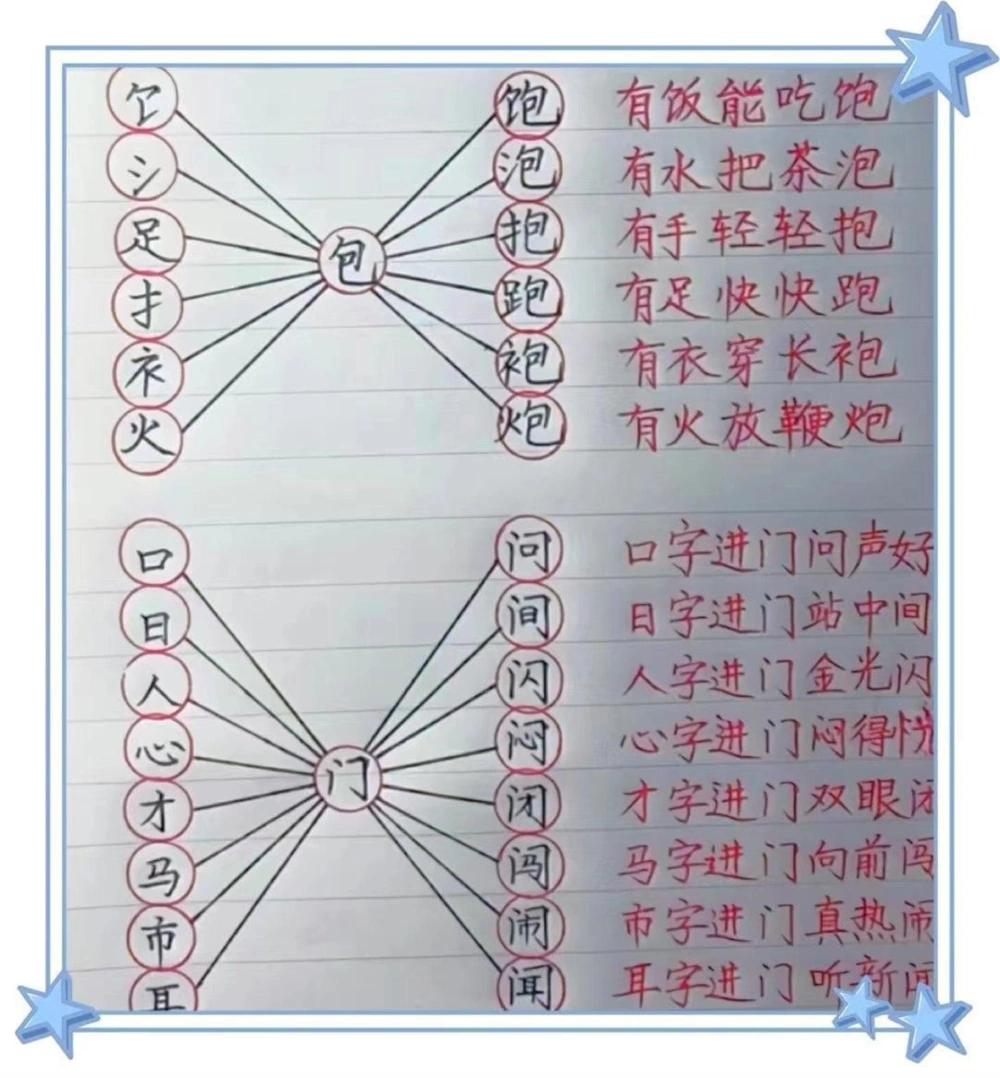 饣 饱 有饭能吃饱
氵 泡 有水把茶泡
足 抱 有手轻轻抱
包
扌 跑 有足快快跑
衤 袍 有衣穿长袍
火 炮 有火放鞭炮
口 问 口字进门问声好
日 间 日字进门站中间
人 闪 人字进门金光闪
心 闷 心字进门闷得慌
门
才 闭 才字进门双眼闭
马 闯 马字进门向前闯
市 闹 市字进门真热闹
耳 闻 耳字进门听新闻